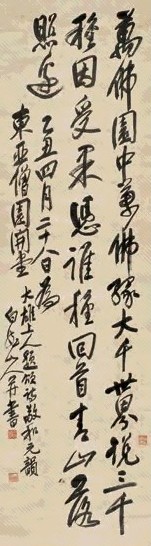 萬佛園中萬佛緣大千世界說三千
種因受果憑誰種回首青山落
照邊 乙丑四月二十八日為
東亞僧園開堂
大雄上人題頌敬和元韻
白龍山人并書